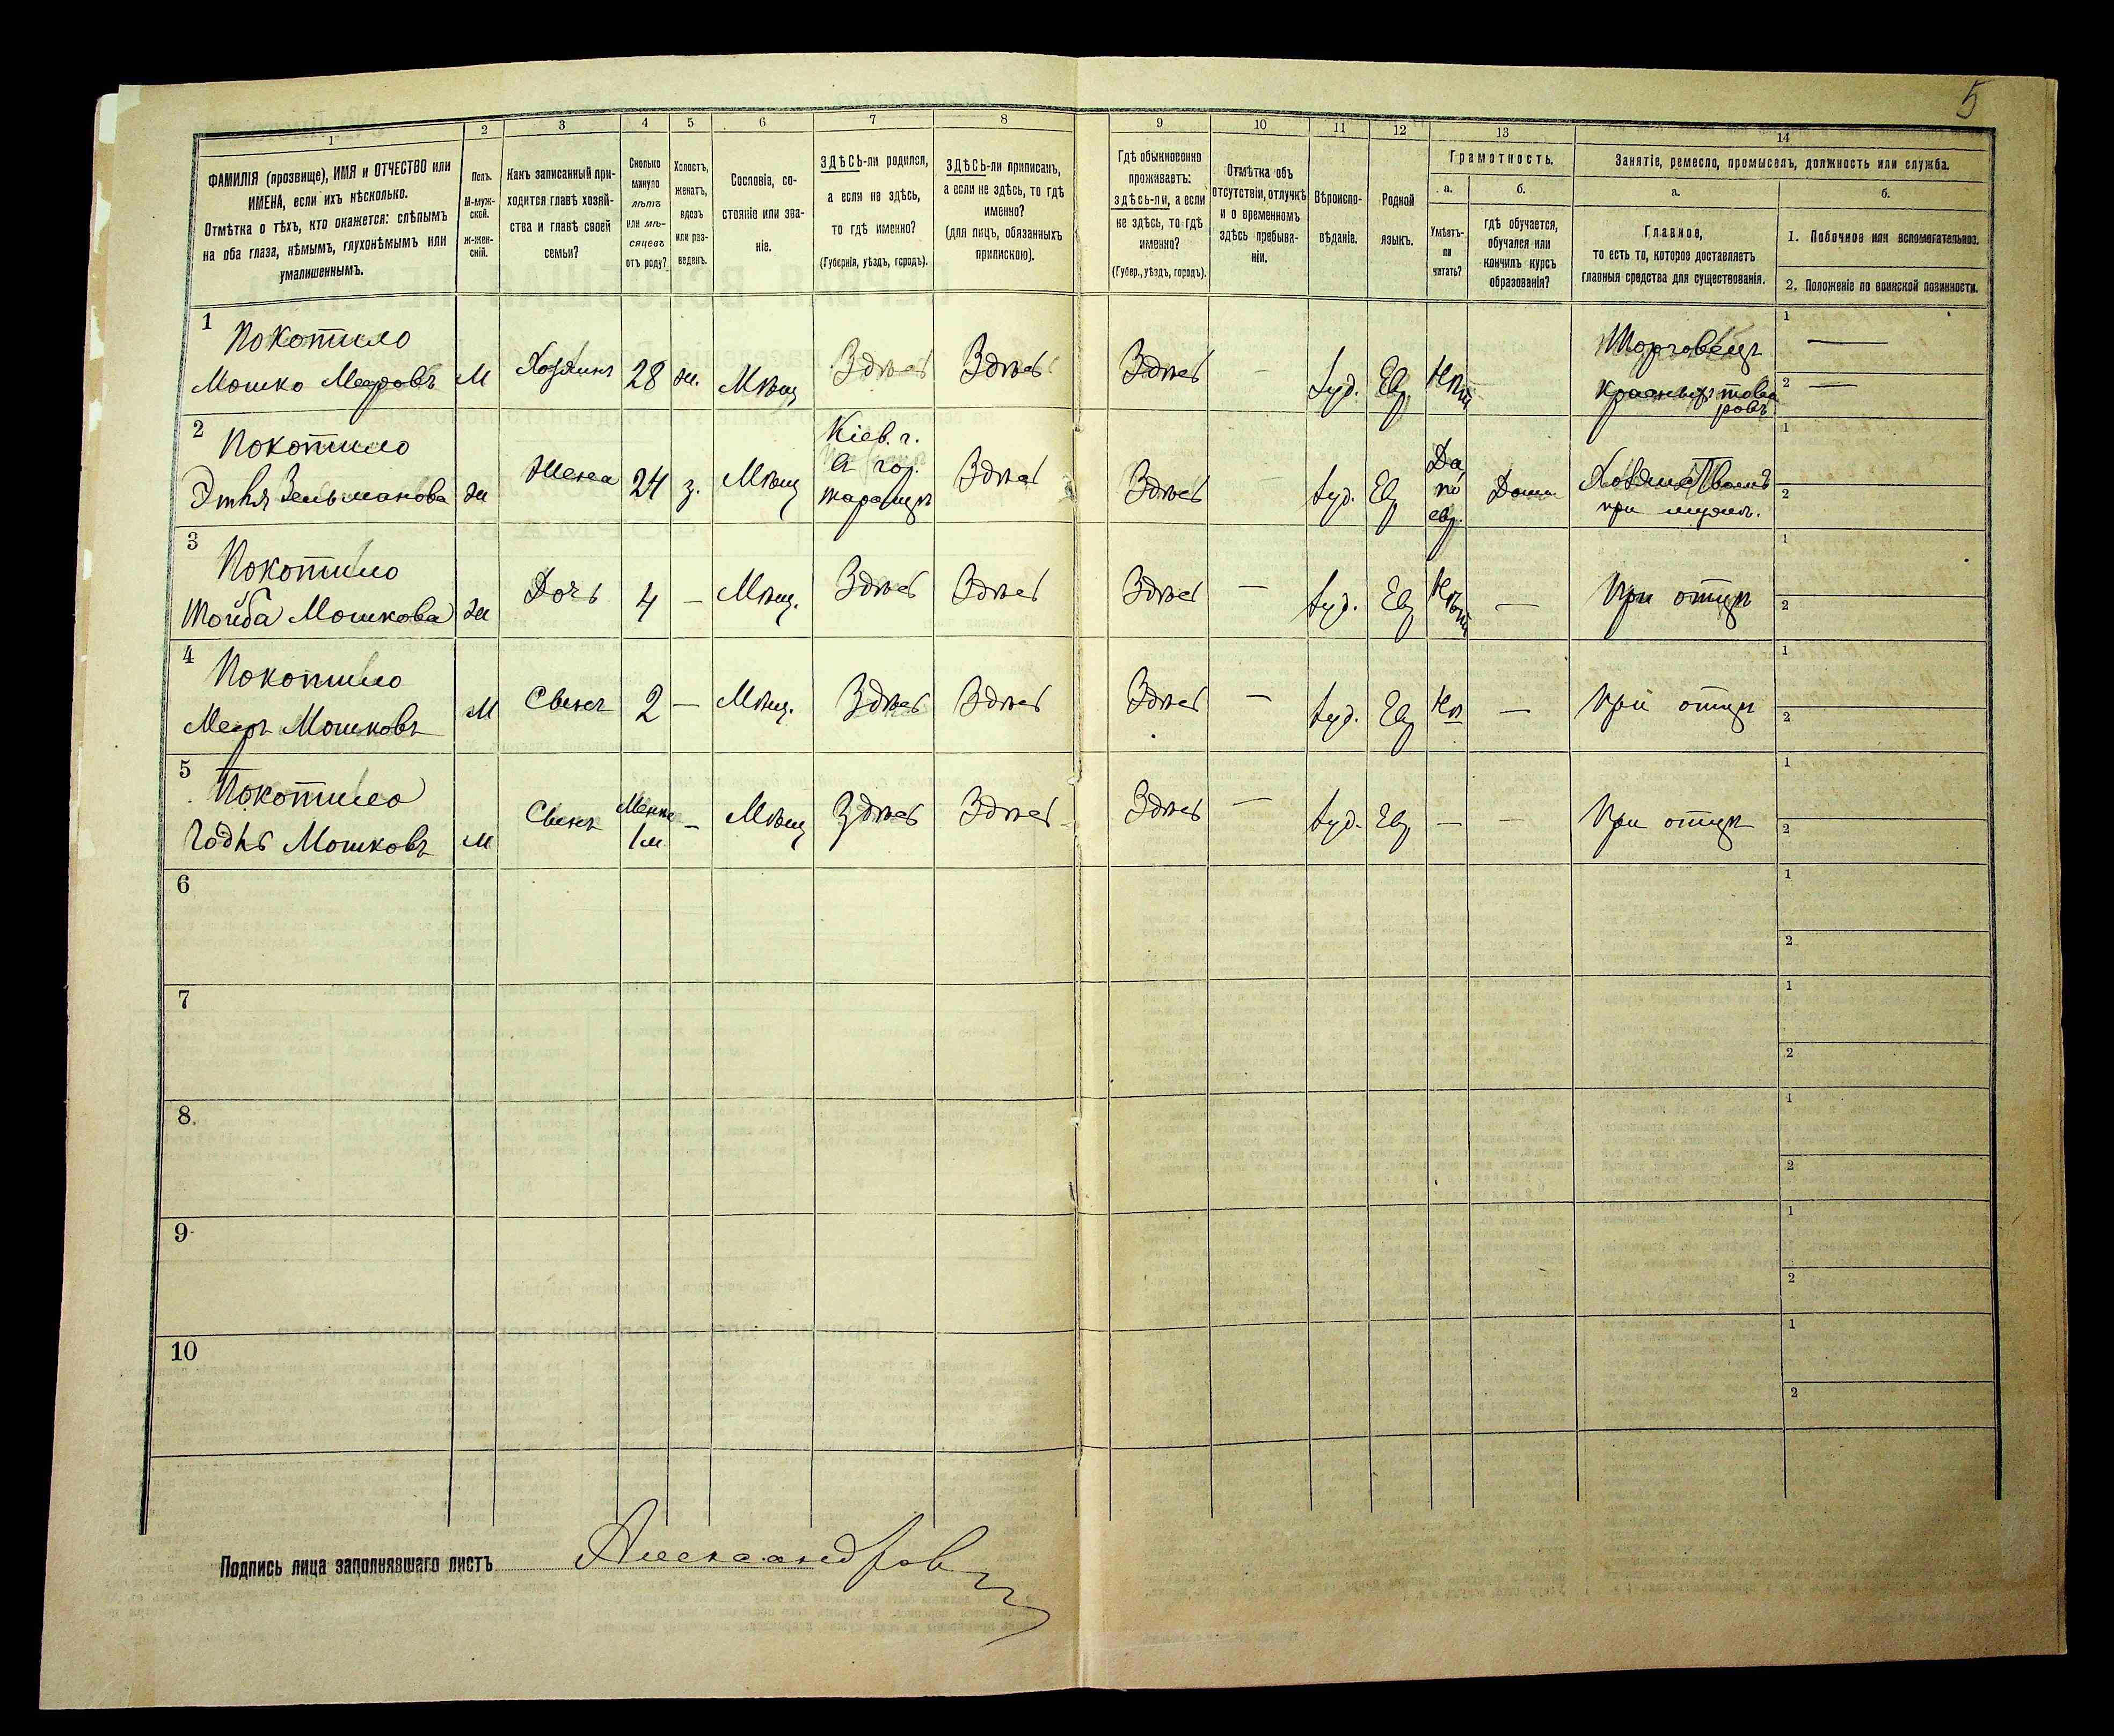 5
1
2
3
4
5
6
7
8
9
10
11
12
13
14
ФАМИЛІЯ (прозвище), ИМЯ и ОТЧЕСТВО или
ИМЕНА, если ихъ нѣсколько.
Отмѣтка о тѣхъ, кто окажется: слѣпымъ
на оба глаза, нѣмымъ, глухонѣмымъ или
умалишеннымъ.
Полъ.
М-муж-
ской.
Ж-жен-
скій.
Какъ записанный при-
ходится главѣ хозяй-
ства и главѣ своей
семьи?
Сколько
минуло
лѣтъ
или мѣ-
сяцевъ
отъ роду?
Холостъ,
женатъ,
вдовъ
или раз-
веденъ.
Сословіе, со-
стояніе или зва-
ніе.
ЗДѢСЬ-ли родился,
а если не здѣсь,
то гдѣ именно?
(Губернія, уѣздъ, городъ).
ЗДѢСЬ-ли приписанъ,
а если не здѣсь, то гдѣ
именно?
(для лицъ, обязанныхъ
припискою).
Гдѣ обыкновенно
проживаетъ:
здѣсь-ли, а если
не здѣсь, то гдѣ
именно?
(Губер., уѣздъ, городъ).
Отмѣтка объ
отсутствіи, отлучкѣ
и о временномъ
здѣсь пребыва-
ніи.
Вѣроиспо-
вѣданіе.
Родной
языкъ.
Грамотность.
а.
б.
Умѣетъ-
ли
читать?
гдѣ обучается,
обучался или
кончилъ курсъ
образованія?
Занятіе, ремесло, промыселъ, должность или служба.
а.
б.
Главное,
то есть то, которое доставляетъ
главныя средства для существованія.
1. Побочное или вспомогательное.
2. Положеніе по воинской повинности.
1
Покотило
Мошко Мееровъ
М
Хозяинъ
28
ж.
Мѣщ
Здѣсь
Здѣсь
Здѣсь
—
Іуд.
Ев
Нѣт
Торговецъ
красныхъ това
ровъ
1
—
2
—
2
Покотило
Этля Зельманова
Ж
Жена
24
з.
Мѣщ
Кіев. г.
гор.
Таращѣ
Здѣсь
Здѣсь
—
Іуд.
Ев
Да,
по
ев.
Дома
при мужѣ.
1
2
3
Покотило
Тойба Мошкова
Ж
Дочь
4
—
Мѣщ.
Здѣсь
Здѣсь
Здѣсь
—
Іуд.
Ев
Нѣт
—
При отцѣ
1
2
4
Покотило
Меръ Мошковъ
М
Сынъ
2
—
Мѣщ.
Здѣсь
Здѣсь
Здѣсь
—
Іуд.
Ев
—
При отцѣ
1
2
5
Покотило
Годль Мошковъ
М
Сынъ
Менѣе
1 м
—
Мѣщ
Здѣсь
Здѣсь
Здѣсь
—
Іуд.
Ев
—
—
При отцѣ
1
2
6
1
2
7
1
2
8.
1
2
9
1
2
10
1
2
Подпись лица заполнявшаго листъ
Александров